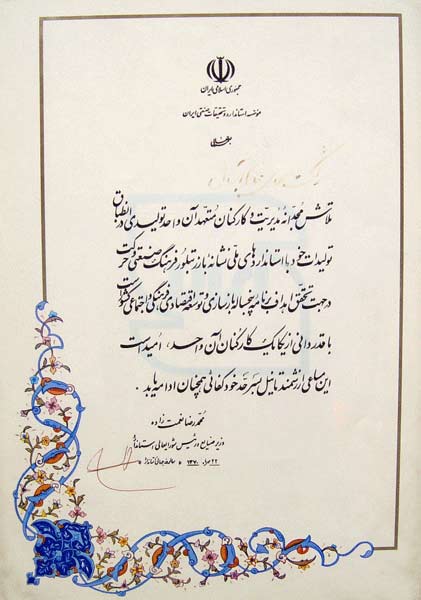 جمهوری اسلامی ایران
مؤسسه استاندارد و تحقیقات صنعتی ایران
بسمه تعالی
تلاش مجدانه مدیریت و کارکنان متعهد آن واحد تولیدی در انطباق
تولیدات خود با استانداردهای ملی نشانه بارز تبلور فرهنگ صنعتی و حرکت
در جهت تحقق اهداف برنامه پنجساله بازسازی و توسعه اقتصادی فرهنگی و اجتماعی کشور است
با قدردانی از یکایک کارکنان آن واحد، امید است
این مساعی ارزشمند تا نیل بسر حد خودکفائی همچنان ادامه یابد.
محمدرضا نعمت زاده
وزیر صنایع و رئیس شورایعالی استاندارد
۲۲ مهر ۱۳۷۰ • سالروز جهانی استاندارد